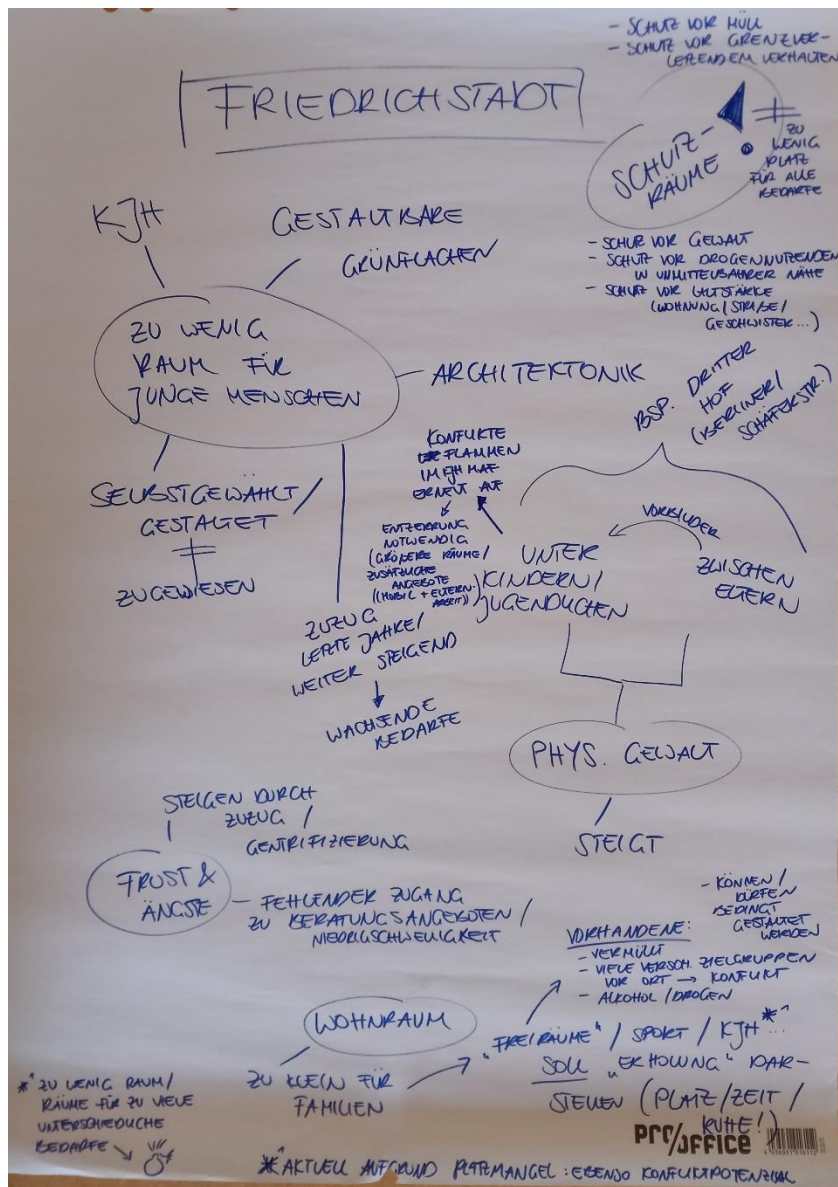 FRIEDRICHSTADT
- SCHUTZ VOR MÜLL
- SCHUTZ VOR GRENZVER-
LETZENDEM VERHALTEN
SCHUTZ-
RÄUME
ZU
WENIG
PLATZ
FÜR ALLE
BEDARFE
- SCHUTZ VOR GEWALT
- SCHUTZ VOR DROGENNUTZENDEN
IN UNMITTELBAHRER NÄHE
- SCHUTZ VOR LAUTSTÄRKE
(WOHNUNG/STRAßE/
GESCHWISTER...)
KJH
GESTALTBARE
GRÜNFLÄCHEN
ZU WENIG
RAUM FÜR
JUNGE MENSCHEN
ARCHITEKTONIK
SELBSTGEWÄHLT/
GESTALTET
ZUGEWIESEN
ZUZUG
LETZTE JAHRE/
WEITER STEIGEND
WACHSENDE
BEDARFE
BSP. DRITTER
HOF
(BERLINER/
SCHÄFERSTR.)
KONFLIKTE
FLAMMEN
IM
ERNEUT AUF
ENTZERRUNG
NOTWENDIG
(GRÖßERE RÄUME/
ZUSÄTZLICHE
ANGEBOTE
(MOBIL + ELTERN-
ARBEIT))
UNTER
KINDERN/
JUGENDLICHEN
VORBILDER
ZWISCHEN
ELTERN
PHYS. GEWALT
STEIGT
STEIGEN DURCH
ZUZUG /
GENTRIFIZIERUNG
FRUST &
ÄNGSTE
- FEHLENDER ZUGANG
ZU BERATUNGSANGEBOTEN/
NIEDRIGSCHWELLIGKEIT
- KÖNNEN/
DÜRFEN
BEDINGT
GESTALTET
WERDEN
VORHANDENE:
- VERMÜLLT
- VIELE VERSCH. ZIELGRUPPEN
VOR ORT → KONFLIKT
- ALKOHOL/DROGEN
WOHNRAUM
ZU KLEIN FÜR
FAMILIEN
"FREIRÄUME" / SPORT / KJH *...
SOLL "ERHOLUNG" DAR-
STELLEN (PLATZ/ZEIT/
RUHE!)
* ZU WENIG RAUM/
RÄUME FÜR ZU VIELE
UNTERSCHIEDLICHE
BEDARFE
* AKTUELL AUFGRUND PLATZMANGEL: EBENSO KONFLIKTPOTENZIAL
PRO/OFFICE